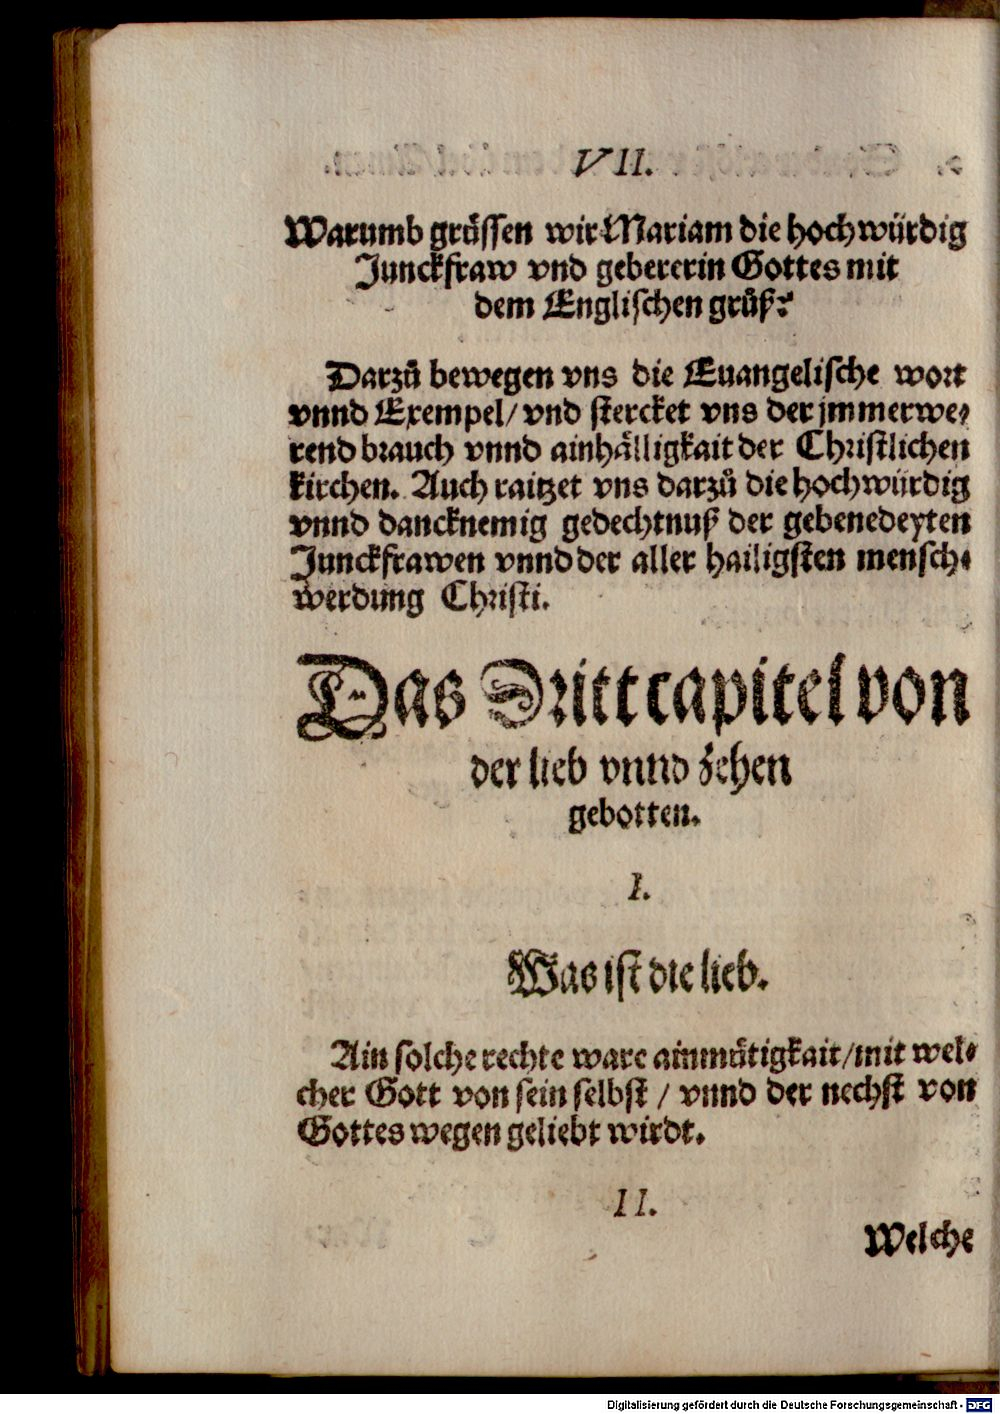 VII.
Warumb grüssen wir Mariam die hochwürdig
Junckfraw vnd gebererin Gottes mit
dem Englischen grůß?
Darzů bewegen vns die Euangelische wort
vnnd Exempel/ vnd stercket vns der jmmerwe-
rend brauch vnnd ainhälligkait der Christlichen
kirchen. Auch raitzet vns darzů die hochwürdig
vnnd dancknemig gedechtnuß der gebenedeyten
Junckfrawen vnnd der aller hailigsten mensch-
werdung Christi.
Das Dritt capitel von
der lieb vnnd zehen
gebotten.
I.
Was ist die lieb.
Ain solche rechte ware ainmůtigkait/mit wel-
cher Gott von sein selbst / vnnd der nechst von
Gottes wegen geliebt wirdt.
II.
Welche
Digitalisierung gefördert durch die Deutsche Forschungsgemeinschaft - DFG